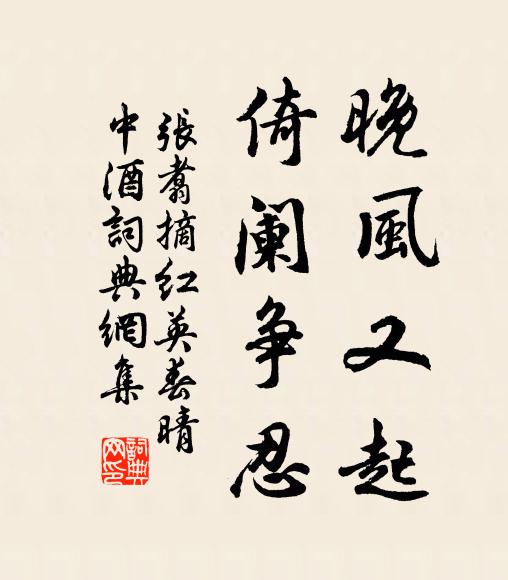 晚風又起
倚阑争忍
張翥摘紅英春晴
中酒詞典網集
詞典網印